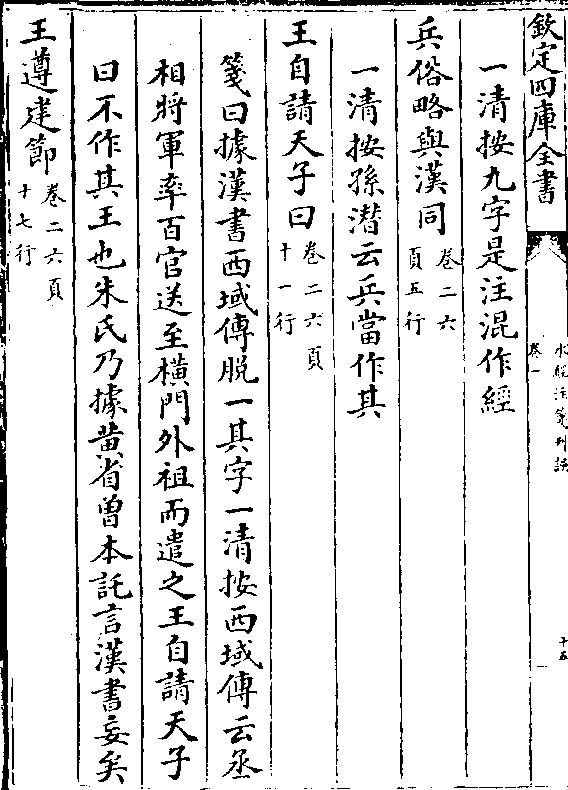 欽定四庫全書
水經注箋刊誤
卷一
十五
一清按九字是注混作經
兵俗略與漢同
卷二六
頁五行
一清按孫潜云兵當作其
王自請天子曰
卷二六頁
十一行
箋曰據漢書西域傳脱一其字一清按西域傳云丞
相將軍率百官送至橫門外祖而遣之王自請天子
曰不作其王也朱氏乃據黄省曾本託言漢書妄矣
王遵建節
卷二六頁
十七行